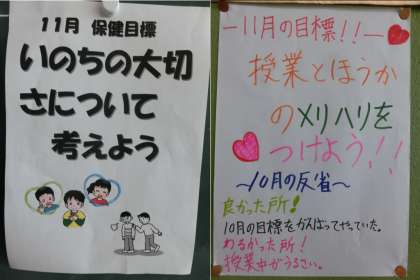 11月 保健目標
いのちの大切
さについて
考えよう
ー11月の目標!!ー
授業とほうか
のメリハリを
つけよう!!
〜10月の反省〜
良かった所!
10月の目標をがんばってやっていた。
わるかった所!
授業中がうるさい。